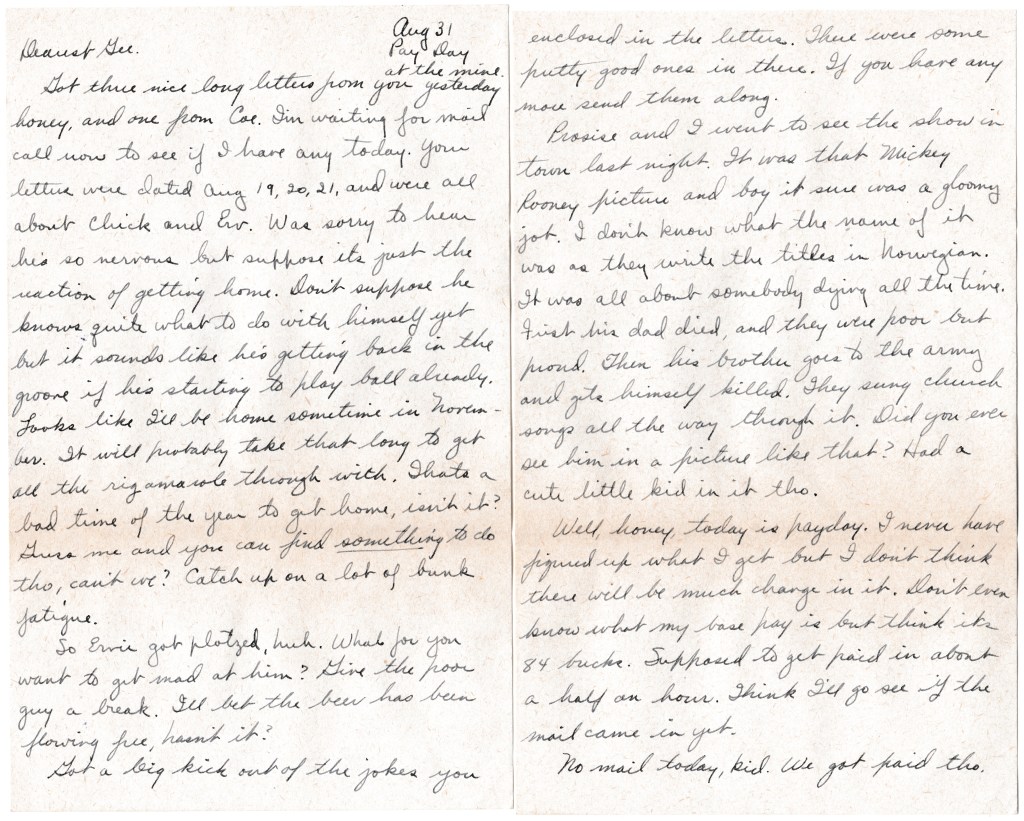 Aug 31
Pay Day
at the mine.
Dearest Gee.
Got three nice long letters from you yesterday
honey, and one from Coe. I'm waiting for mail
call now to see if I have any today. Your
letters were dated Aug 19, 20, 21, and were all
about Chick and Erv. Was sorry to hear
he's so nervous but suppose it's just the
reaction of getting home. Don't suppose he
knows quite what to do with himself yet
but it sounds like he's getting back in the
groove if he's starting to play ball already.
Looks like I'll be home sometime in Novem-
ber. It will probably take that long to get
all the rigamarole through with. Thats a
bad time of the year to get home, isn't it?
Guess me and you can find something to do
tho, can't we? Catch up on a lot of bunk
fatigue.
So Ervie got plotzed, huh. What for you
want to get mad at him? Give the poor
guy a break. I'll bet the beer has been
flowing free, hasn't it?
Got a big kick out of the jokes you
enclosed in the letters. There were some
putty good ones in there. If you have any
more send them along.
Prosise and I went to see the show in
town last night. It was that Mickey
Rooney picture and boy it sure was a gloomy
jot. I don't know what the name of it
was as they write the titles in Norwegian.
It was all about somebody dying all the time.
First his dad died, and they were poor but
proud. Then his brother goes to the army
and gits himself killed. They sung church
songs all the way through it. Did you ever
see him in a picture like that? Had a
cute little kid in it tho.
Well, honey, today is payday. I never have
figured up what I get but I don't think
there will be much change in it. Don't even
know what my base pay is but think its
84 bucks. Supposed to get paid in about
a half an hour. Think I'll go see if the
mail came in yet.
No mail today, kid. We got paid tho.